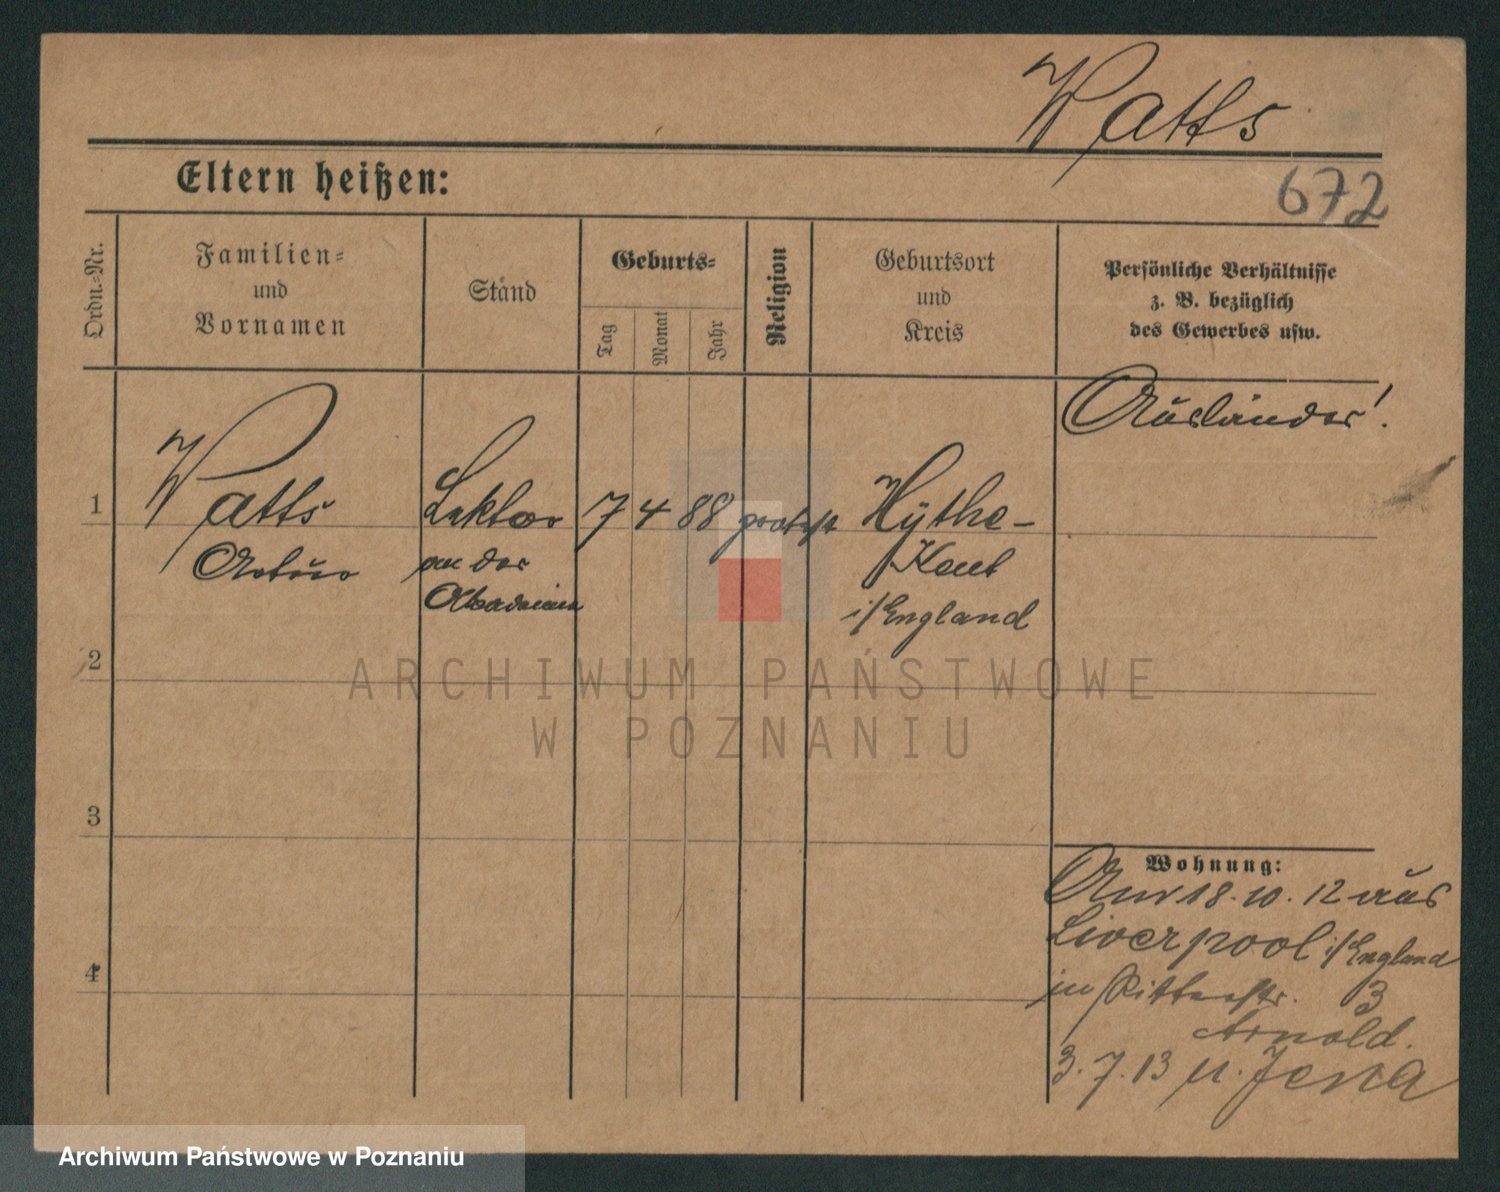 Watts
Eltern heißen:
672
Ordn.-Nr.
Familien-
und
Vornamen
Stand
Geburts-
Tag
Monat
Jahr
Religion
Geburtsort
und
Kreis
Persönliche Verhältnisse
z. B. bezüglich
des Gewerbes usw.
Ausländer!
1
Watts
Artur
Lektor
an der
Akademie
7 4 88 protest
Hythe-
Kent
i/England
2
3
4
Wohnung:
Am 18.10.12 aus
Liverpool i/England
in Ritterstr. 3
Arnold.
3.7.13 u. Jena
ARCHIWUM PAŃSTWOWE
W POZNANIU
Archiwum Państwowe w Poznaniu